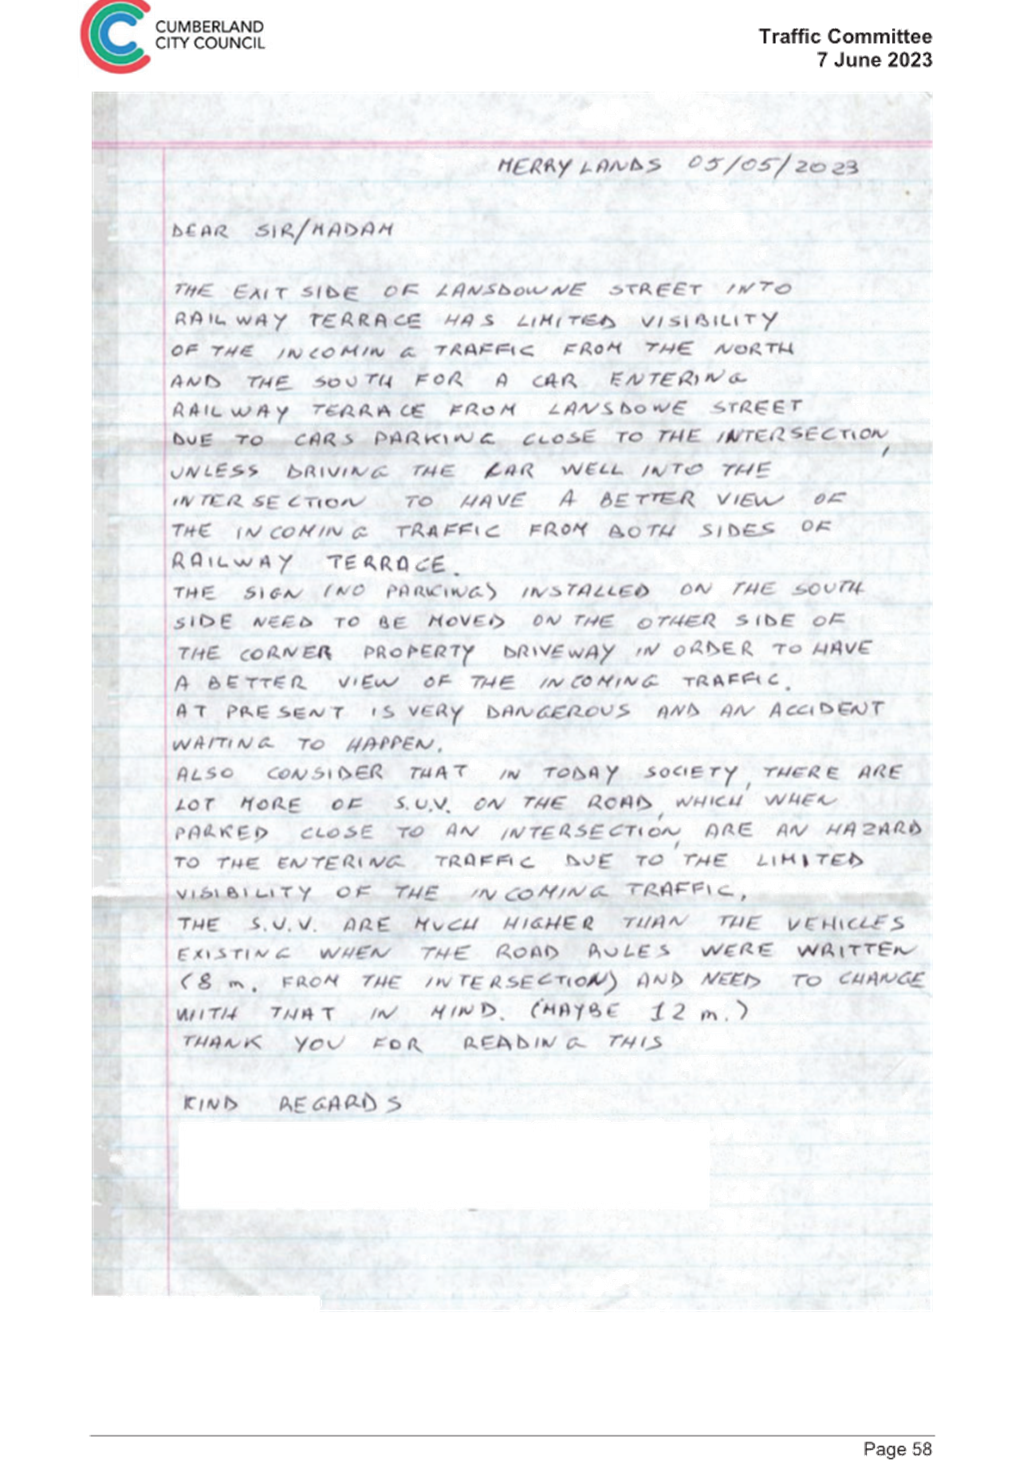 CUMBERLAND
CITY COUNCIL
Traffic Committee
7 June 2023
MERRYLANDS 05/05/2023
DEAR SIR/MADAM
THE EXIT SIDE OF LANSDOWNE STREET INTO
RAILWAY TERRACE HAS LIMITED VISIBILITY
OF THE INCOMING TRAFFIC FROM THE NORTH
AND THE SOUTH FOR A CAR ENTERING
RAILWAY TERRACE FROM LANSDOWE STREET
DUE TO CARS PARKING CLOSE TO THE INTERSECTION,
UNLESS DRIVING THE CAR WELL INTO THE
INTERSECTION TO HAVE A BETTER VIEW OF
THE INCOMING TRAFFIC FROM BOTH SIDES OF
RAILWAY TERRACE.
THE SIGN (NO PARKING) INSTALLED ON THE SOUTH
SIDE NEED TO BE MOVED ON THE OTHER SIDE OF
THE CORNER PROPERTY DRIVEWAY IN ORDER TO HAVE
A BETTER VIEW OF THE INCOMING TRAFFIC.
AT PRESENT IS VERY DANGEROUS AND AN ACCIDENT
WAITING TO HAPPEN.
ALSO CONSIDER THAT IN TODAY SOCIETY, THERE ARE
LOT MORE OF S.U.V. ON THE ROAD, WHICH WHEN
PARKED CLOSE TO AN INTERSECTION, ARE AN HAZARD
TO THE ENTERING TRAFFIC DUE TO THE LIMITED
VISIBILITY OF THE INCOMING TRAFFIC,
THE S.U.V. ARE MUCH HIGHER THAN THE VEHICLES
EXISTING WHEN THE ROAD RULES WERE WRITTEN
(8 m. FROM THE INTERSECTION) AND NEED TO CHANGE
WITH THAT IN MIND. (MAYBE 12 m.)
THANK YOU FOR READING THIS
KIND REGARDS
Page 58